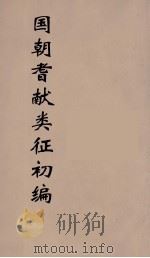 国朝耆献类征初编
芽搜狗
mtoou.info